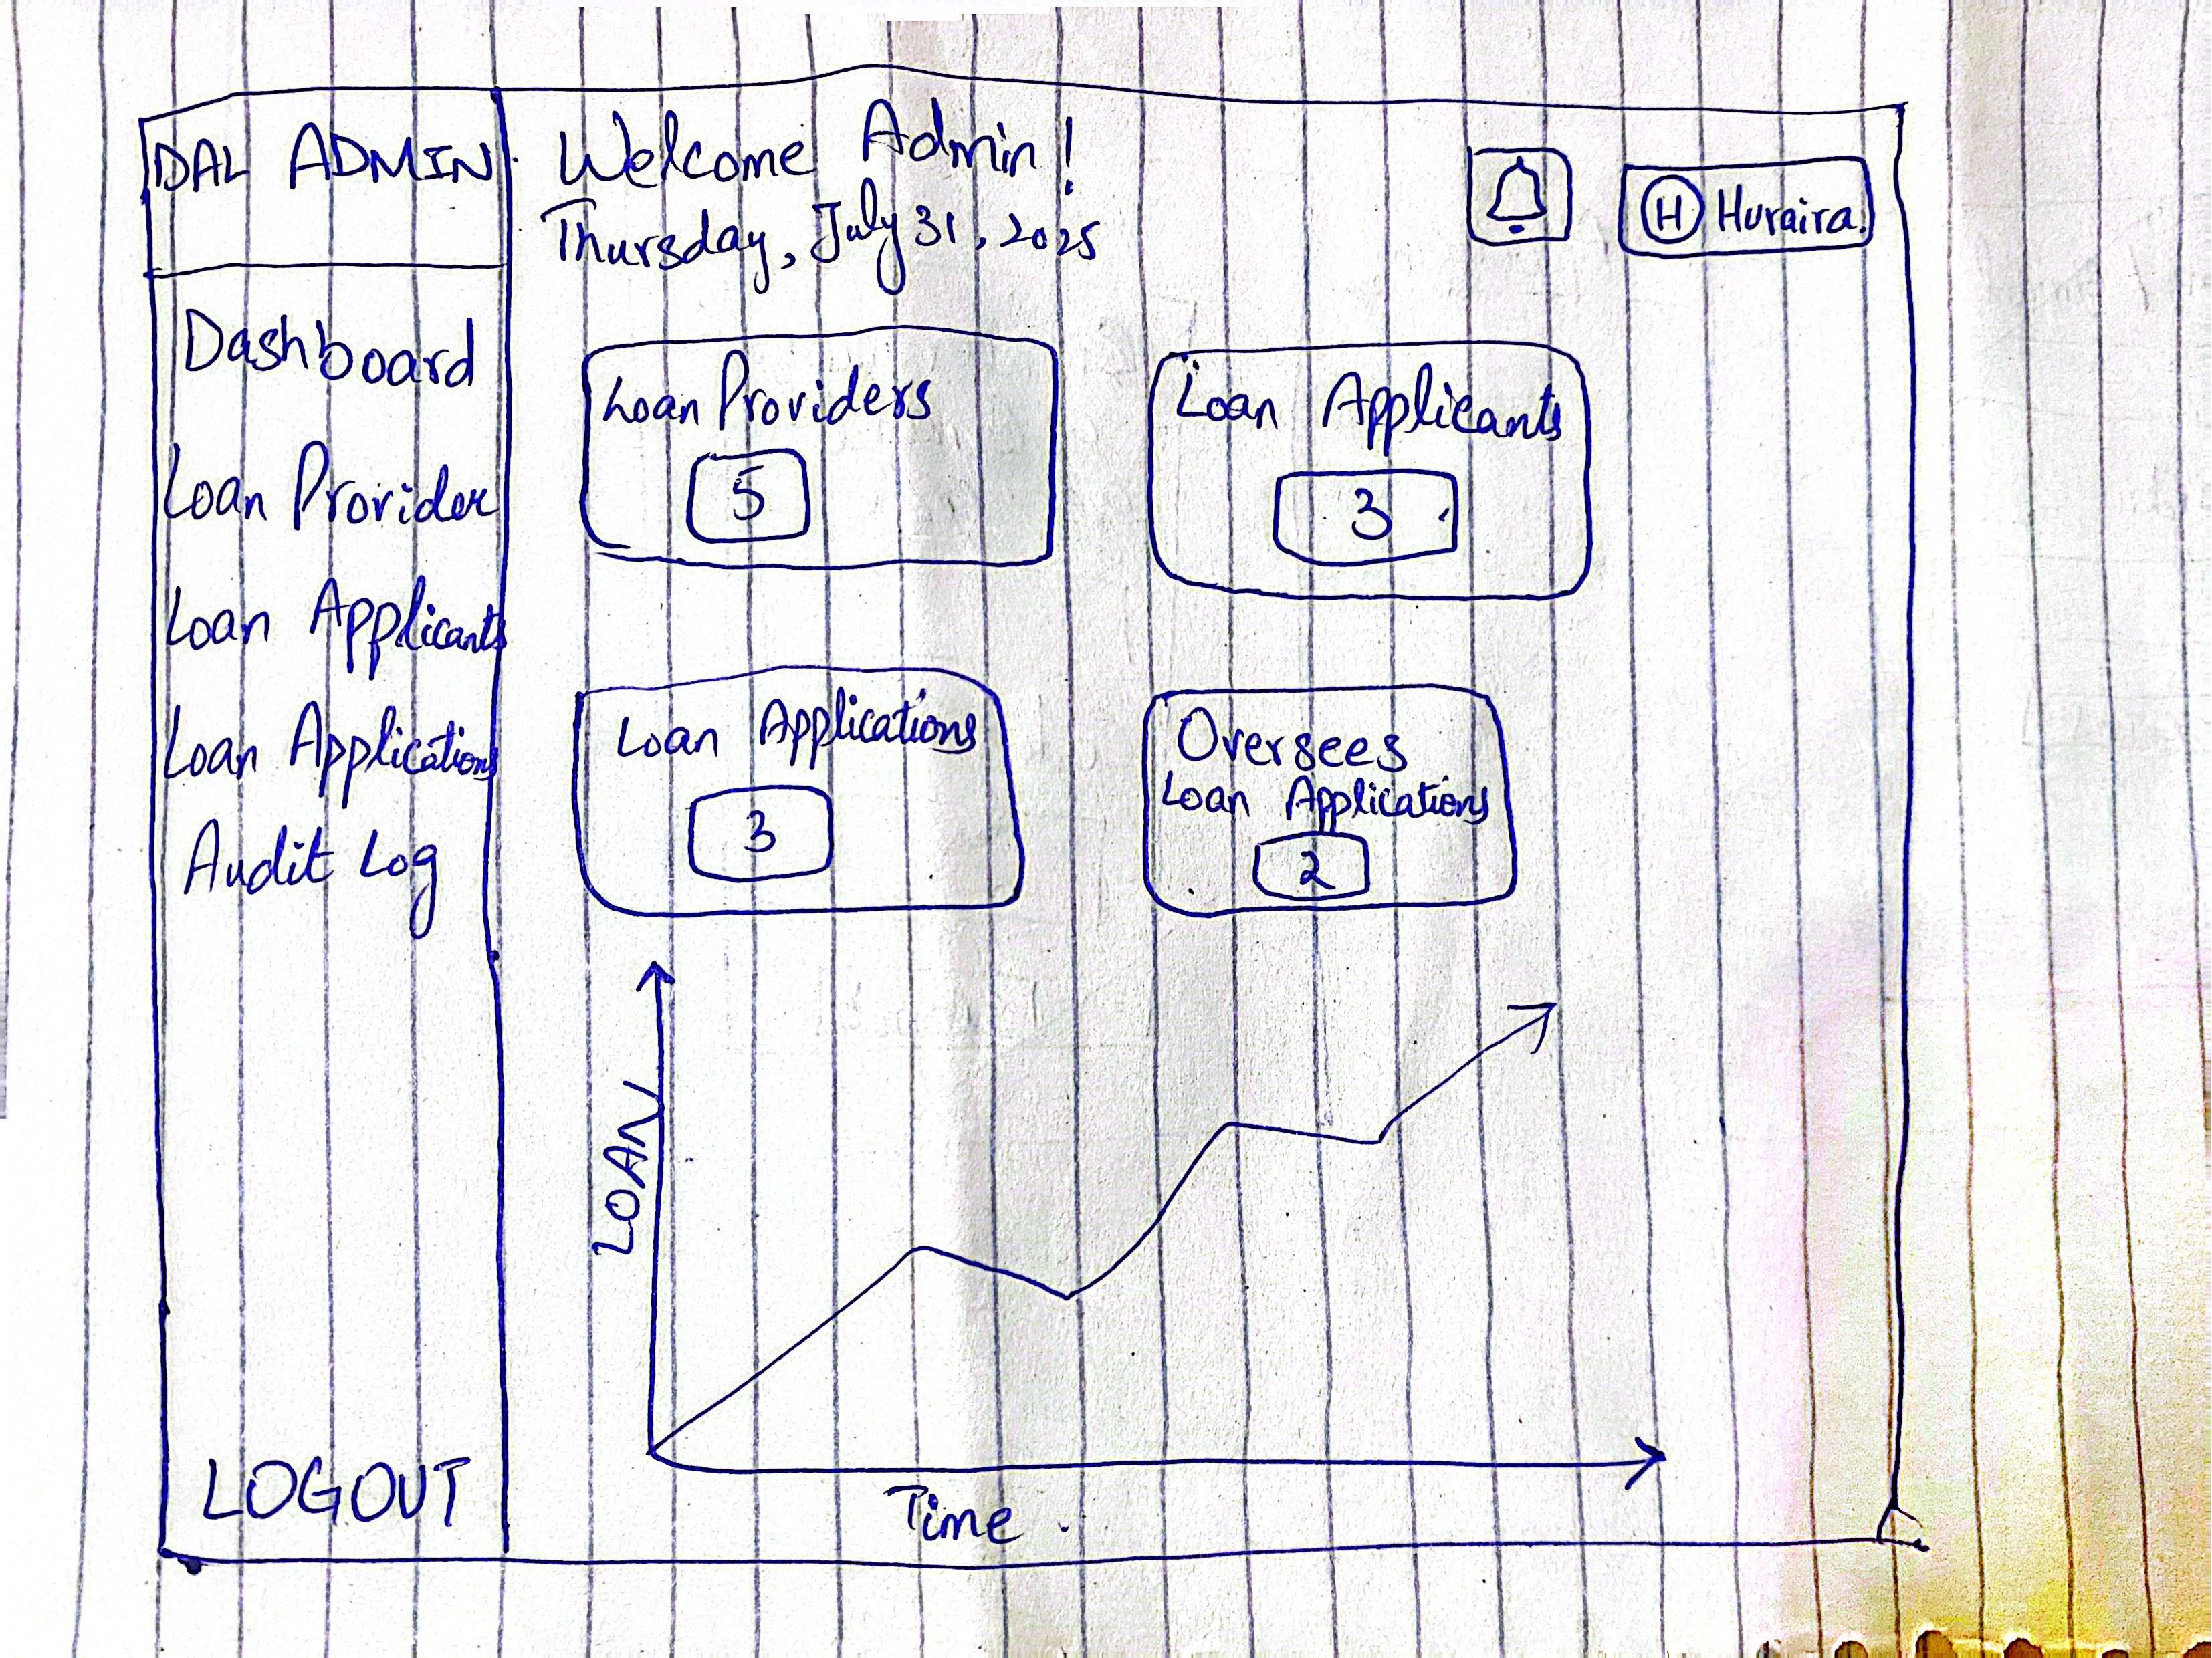 DAL ADMIN
Dashboard
Loan Provider
Loan Applicants
Loan Applications
Audit Log
LOGOUT
Welcome Admin!
Thursday, July 31, 2025
H Huraira.
Loan Providers
5
Loan Applicants
3
Loan Applications
3
Oversees
Loan Applications
2
LOAN
Time